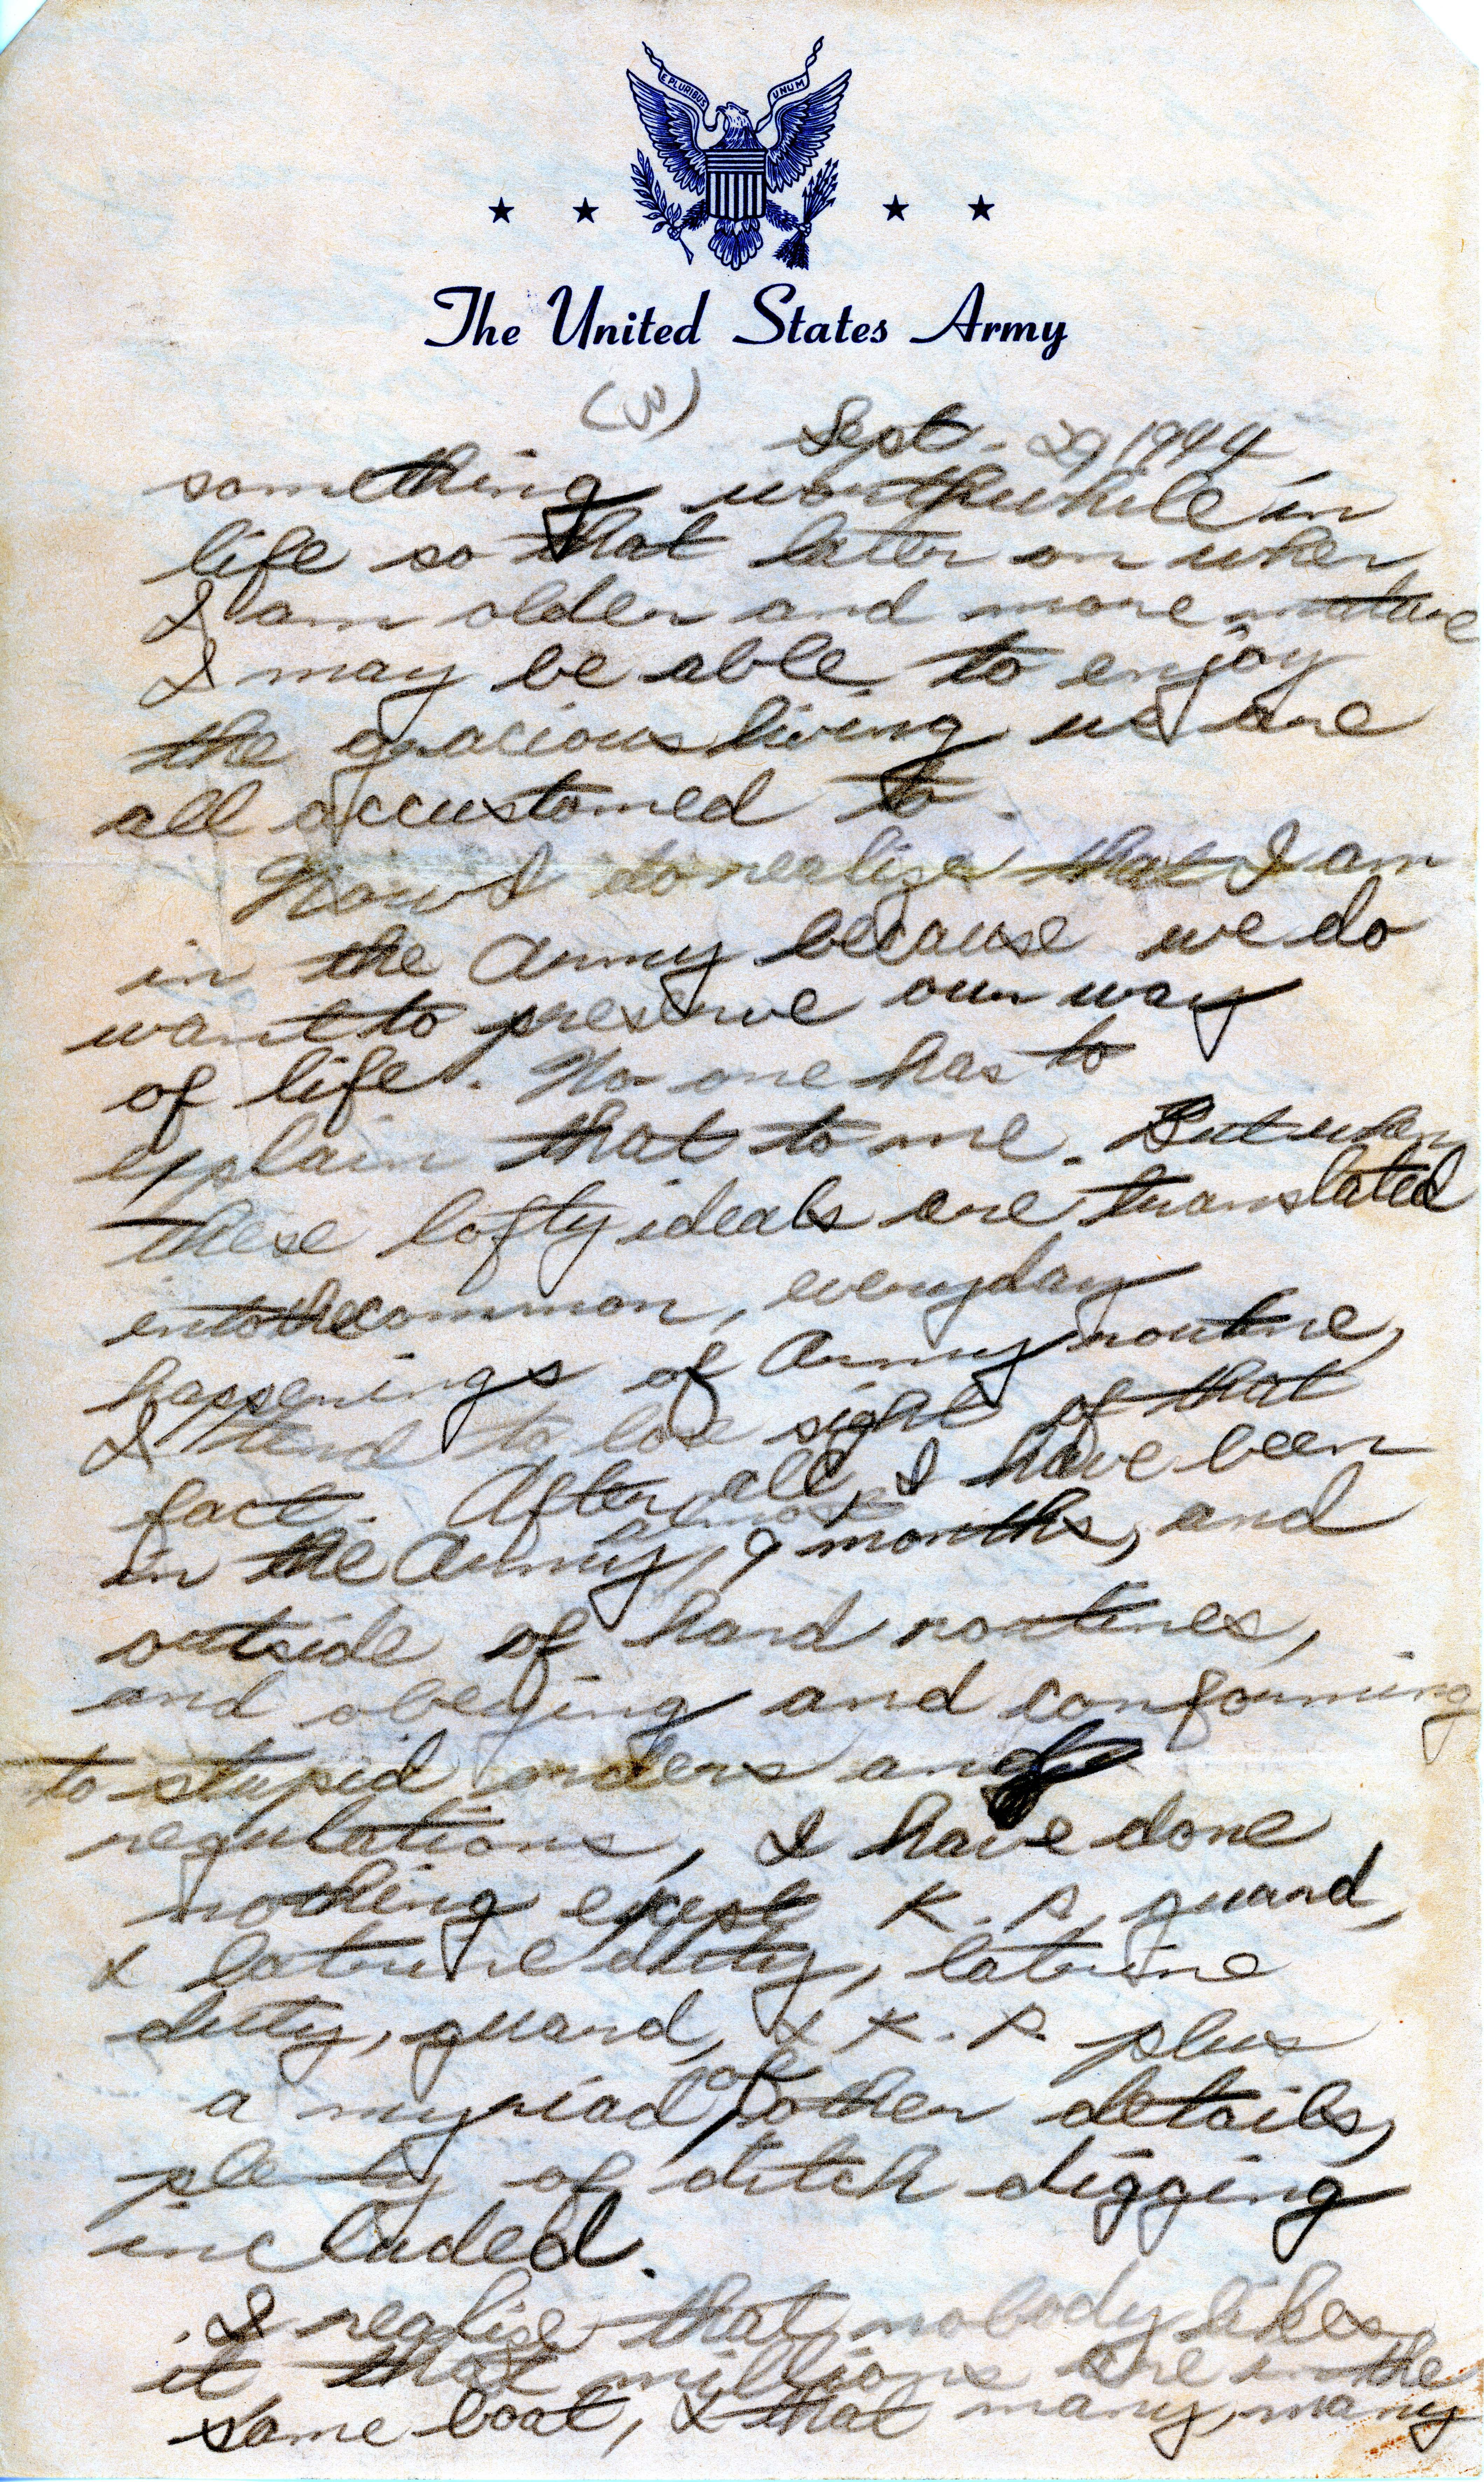 E PLURIBUS UNUM
The United States Army
(3)
Sept. 29 1944
something worthwhile in
life so that later on when
I am older and more mature
I may be able to enjoy
the gracious living us are
all accustomed to.
Now I do realize that I am
in the Army because we do
want to preserve our way
of life. No one has to
explain that to me. But when
these lofty ideals are translated
into the common, everyday
happenings of Army routine,
I tend to lose sight of that
fact. After all, I have been
in the Army, almost 9 months, and
outside of hard routines,
and obeying and conforming
to stupid orders and
regulations, I have done
nothing except K.P. guard,
& latrine duty, latrine
duty, guard, & K.P. plus
a myriad of other details,
plenty of ditch digging
included.
I realize that nobody likes
it that millions are in the
same boat, & that many, many